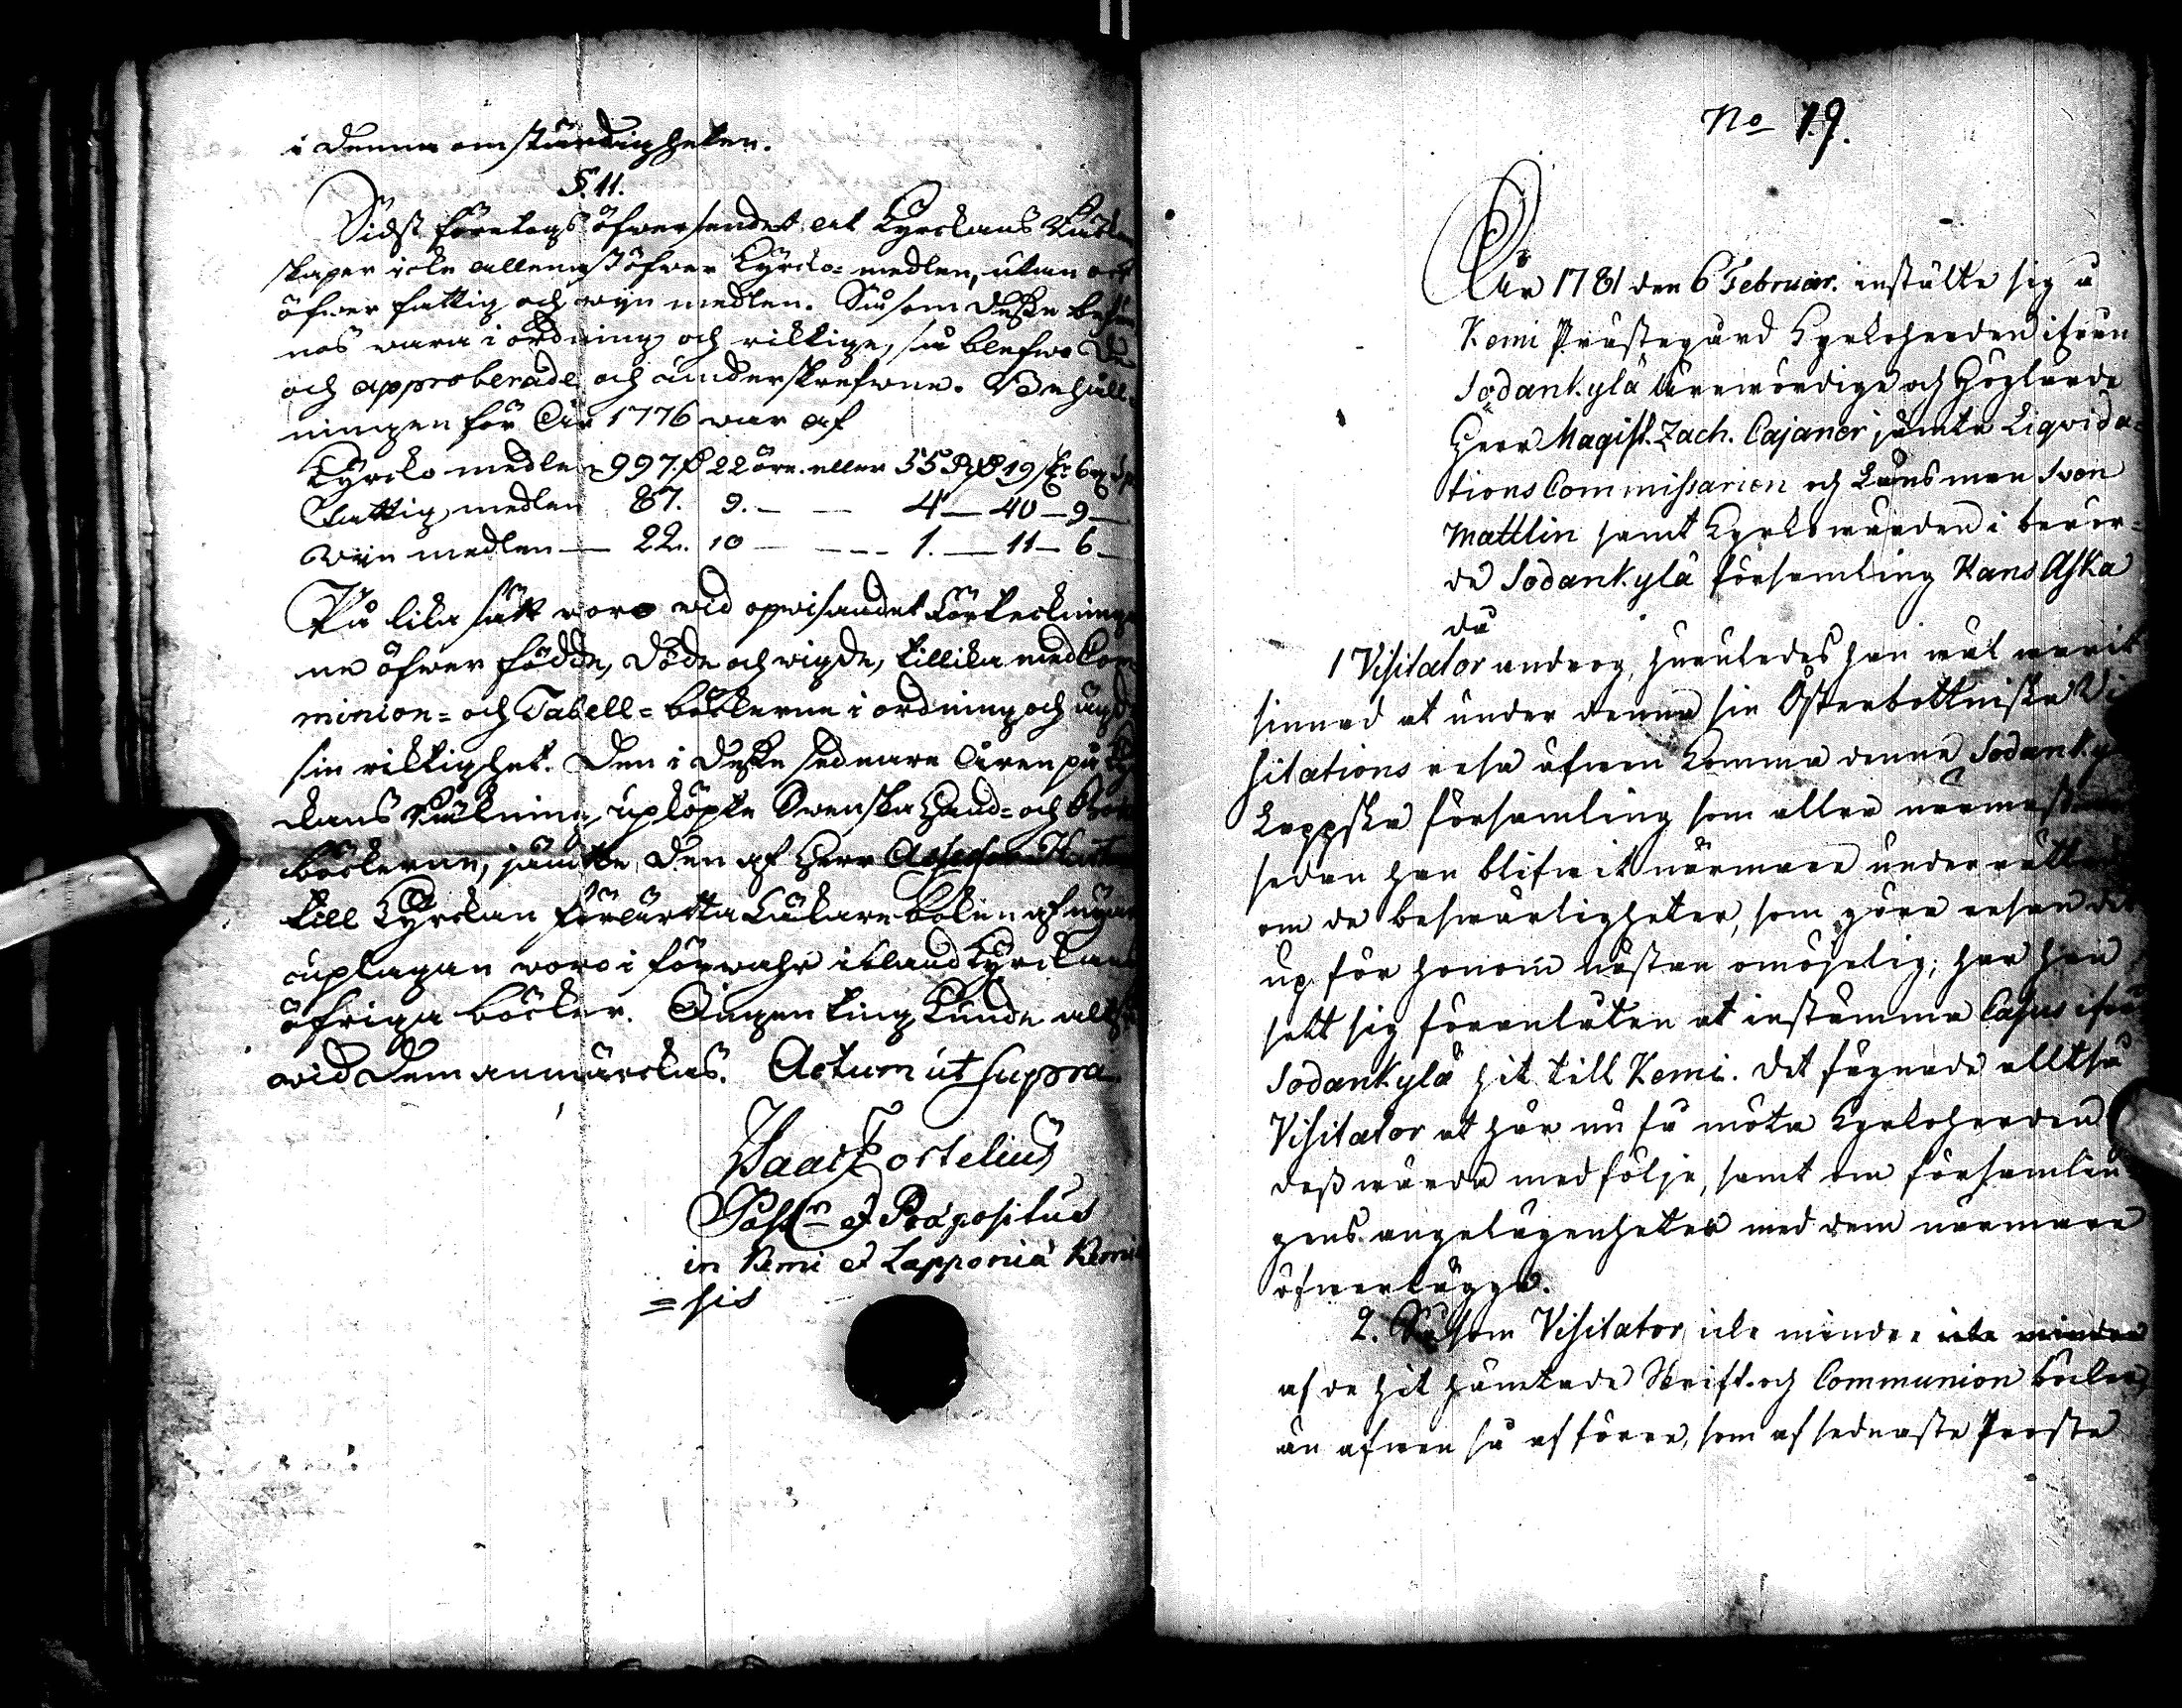 i denna omständigheten.
§. 11.
Sidst företogs öfwerseendet at Kyrckans
skaper icke allenast öfwer Kyrcko-medlen, utan och
öfwer fattig och wijn medlen. Såsom desse befun
nos wara i ordning och riktige, så blefwo de
och approberade och underskrefwne. Behåll-
ningen för År 1776 war af
Kyrcko medlen 997. 22 öre. eller 55 19 sk: 6
Fattig medlen 87. 9. — — 4 — 40 — 9 —
Wijn medlen — 22. 10 — — — 1. — 11 — 6 —
På lika sätt woro wid opwisandet Förteckninga
ne öfwer födde, döde och wigde, tillika med Com
minion- och Tabell-böckerne i ordning och ägde
sin riktighet. Den i desse sednare åren på Kyr
ckans räkning upköpte Svenska Hand- och
böckerne, jämte den af Herr Assessor
till Kyrckan förärtta Läkare boken af nya
uplagan woro i förwahr ibland Kyrckans
öfriga böcker. Ingen ting kunde altså
wid dem anmärckas. Actum ut supra.
Isaac Fortelius
Past:r et Præpositus
in Kemi et Lapponia Kemi
=sis
No 19.
År 1781 den 6 Februar. instälte sig å
Kemi Prästegård Kyrkoherden ifrån
Sodankylä ärewördige och Höglärde
Herr Magist. Zach. Cajaner jämte Liqvida=
tions Commissarien och Länsman Sven
Mattlin samt Kyrkowärden i berör=
de Sodankylä församling Hans Aska
då
1 Visitator androg, huruledes han wäl warit
sinnad at under denna sin Österbottniska Vi
sitations resa äfwen komma denna Sodanky
Lappska församling som aller närmast
sedan han blifwit närmare underrätta
om de beswärligheter, som göra resan dit
up för honom nästan omöjelig; har han
sett sig föranlåten at instämma Casus ifrån
Sodankylä hit till Kemi. Det fägnade alltså
Visitator at här nu få möta Kyrkoherden
dess wärda medfölje, samt om församlin
gens angelägenheter med dem närmare
öfwerlägga.
2. Såsom Visitator icke mindre icke mindre
af de hit hämtade Skrift- och Communion böcker,
än äfwen så af förra, som af sednaste Proste